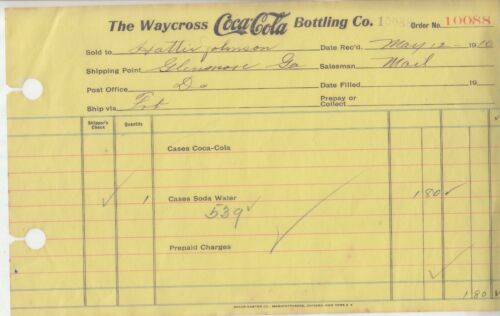 The Waycross Coca-Cola Bottling Co. 10088 Order No. 10088
Sold to Hattie Johnson Date Rec'd. May 12 - 1910
Shipping Point Glenmore Ga Salesman Mail
Post Office Do Date Filled 19
Ship via Frt Prepay or Collect
Shipper's Check Quantity
Cases Coca-Cola
✓ 1 Cases Soda Water 1 80 ✓
539 ✓
Prepaid Charges ✓
✓
1 80 ✓